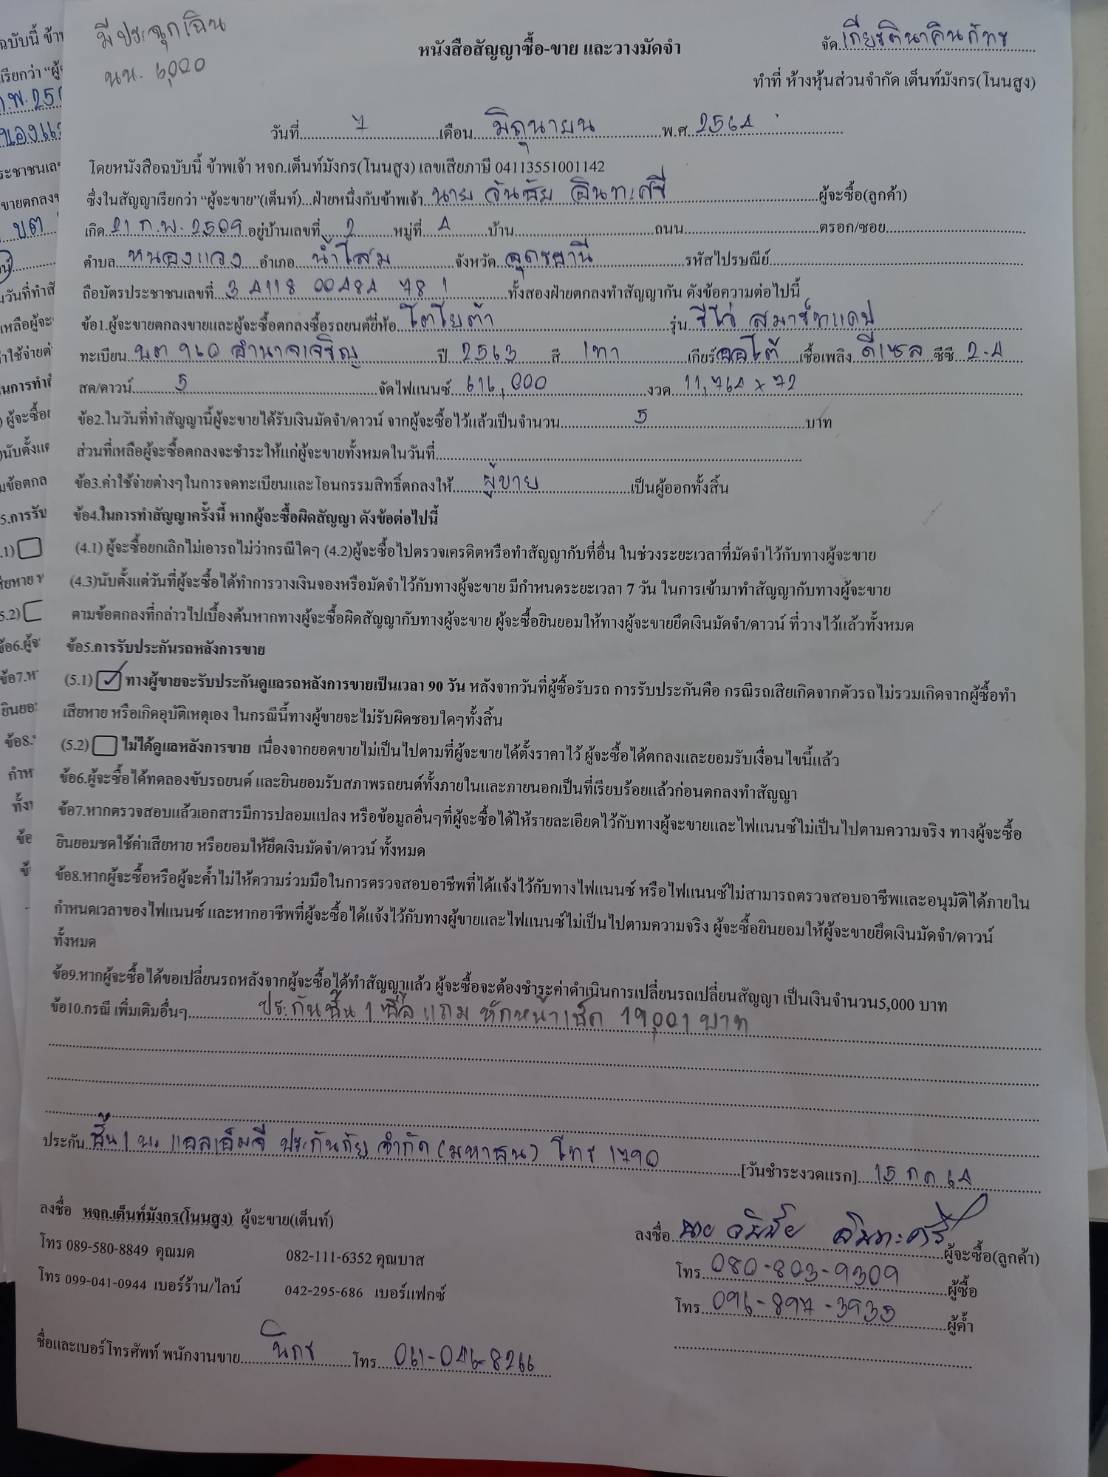 มีประฉุกเฉิน
นน. 6,000
จัด.เกียรตินาคินภัทร
หนังสือสัญญาซื้อ-ขาย และวางมัดจำ
ทำที่ ห้างหุ้นส่วนจำกัด เต็นท์มังกร(โนนสูง)
วันที่ 7 เดือน มิถุนายน พ.ศ. 2564
โดยหนังสือฉบับนี้ ข้าพเจ้า หจก.เต็นท์มังกร(โนนสูง) เลขเสียภาษี 04113551001142
ซึ่งในสัญญาเรียกว่า “ผู้จะขาย”(เต็นท์)...ฝ่ายหนึ่งกับข้าพเจ้า นาย อินทะศรี ผู้จะซื้อ(ลูกค้า)
เกิด 21 ก.พ. 2509 อยู่บ้านเลขที่ 2 หมู่ที่ 4 บ้าน ถนน ตรอก/ซอย
ตำบล หนองแวง อำเภอ น้ำโสม จังหวัด อุดรธานี รหัสไปรษณีย์
ถือบัตรประชาชนเลขที่ 3 4118 00484 78 1 ทั้งสองฝ่ายตกลงทำสัญญากัน ดังข้อความต่อไปนี้
ข้อ1.ผู้จะขายตกลงขายและผู้จะซื้อตกลงซื้อรถยนต์ยี่ห้อ โตโยต้า รุ่น รีโว่ สมาร์ทแคป
ทะเบียน บต 960 อำนาจเจริญ ปี 2563 สี เทา เกียร์ ออโต้ เชื้อเพลิง ดีเซล ซีซี 2.4
สด/ดาวน์ 5 จัดไฟแนนซ์ 616,000 งวด 11,764 x 72
ข้อ2.ในวันที่ทำสัญญานี้ผู้จะขายได้รับเงินมัดจำ/ดาวน์ จากผู้จะซื้อไว้แล้วเป็นจำนวน 5 บาท
ส่วนที่เหลือผู้จะซื้อตกลงจะชำระให้แก่ผู้จะขายทั้งหมดในวันที่
ข้อ3.ค่าใช้จ่ายต่างๆในการจดทะเบียนและโอนกรรมสิทธิ์ตกลงให้ ผู้ขาย เป็นผู้ออกทั้งสิ้น
ข้อ4.ในการทำสัญญาครั้งนี้ หากผู้จะซื้อผิดสัญญา ดังข้อต่อไปนี้
(4.1) ผู้จะซื้อยกเลิกไม่เอารถไม่ว่ากรณีใดๆ (4.2)ผู้จะซื้อไปตรวจเครดิตหรือทำสัญญากับที่อื่น ในช่วงระยะเวลาที่มัดจำไว้กับทางผู้จะขาย
(4.3)นับตั้งแต่วันที่ผู้จะซื้อได้ทำการวางเงินจองหรือมัดจำไว้กับทางผู้จะขาย มีกำหนดระยะเวลา 7 วัน ในการเข้ามาทำสัญญากับทางผู้จะขาย
ตามข้อตกลงที่กล่าวไปเบื้องต้นหากทางผู้จะซื้อผิดสัญญากับทางผู้จะขาย ผู้จะซื้อยินยอมให้ทางผู้จะขายยึดเงินมัดจำ/ดาวน์ ที่วางไว้แล้วทั้งหมด
ข้อ5.การรับประกันรถหลังการขาย
(5.1) ✓ ทางผู้ขายจะรับประกันดูแลรถหลังการขายเป็นเวลา 90 วัน หลังจากวันที่ผู้ซื้อรับรถ การรับประกันคือ กรณีรถเสียเกิดจากตัวรถ ไม่รวมเกิดจากผู้ซื้อทำ
เสียหาย หรือเกิดอุบัติเหตุเอง ในกรณีนี้ทางผู้ขายจะไม่รับผิดชอบใดๆทั้งสิ้น
(5.2) ไม่ได้ดูแลหลังการขาย เนื่องจากยอดขายไม่เป็นไปตามที่ผู้จะขายได้ตั้งราคาไว้ ผู้จะซื้อได้ตกลงและยอมรับเงื่อนไขนี้แล้ว
ข้อ6.ผู้จะซื้อได้ทดลองขับรถยนต์ และยินยอมรับสภาพรถยนต์ทั้งภายในและภายนอกเป็นที่เรียบร้อยแล้วก่อนตกลงทำสัญญา
ข้อ7.หากตรวจสอบแล้วเอกสารมีการปลอมแปลง หรือข้อมูลอื่นๆที่ผู้จะซื้อได้ให้รายละเอียดไว้กับทางผู้จะขายและไฟแนนซ์ไม่เป็นไปตามความจริง ทางผู้จะซื้อ
ยินยอมชดใช้ค่าเสียหาย หรือยอมให้ยึดเงินมัดจำ/ดาวน์ ทั้งหมด
ข้อ8.หากผู้จะซื้อหรือผู้จะค้ำไม่ให้ความร่วมมือในการตรวจสอบอาชีพที่ได้แจ้งไว้กับทางไฟแนนซ์ หรือไฟแนนซ์ไม่สามารถตรวจสอบอาชีพและอนุมัติได้ภายใน
กำหนดเวลาของไฟแนนซ์ และหากอาชีพที่ผู้จะซื้อได้แจ้งไว้กับทางผู้ขายและไฟแนนซ์ไม่เป็นไปตามความจริง ผู้จะซื้อยินยอมให้ผู้จะขายยึดเงินมัดจำ/ดาวน์
ทั้งหมด
ข้อ9.หากผู้จะซื้อได้ขอเปลี่ยนรถหลังจากผู้จะซื้อได้ทำสัญญาแล้ว ผู้จะซื้อจะต้องชำระค่าดำเนินการเปลี่ยนรถเปลี่ยนสัญญา เป็นเงินจำนวน5,000 บาท
ข้อ10.กรณี เพิ่มเติมอื่นๆ ประกันชั้น 1 ซื้อแถม หักหน้าเช็ค 19,001 บาท
ประกัน ชั้น 1 บ. แอลเอ็มจี ประกันภัย จำกัด (มหาชน) โทร 1790 [วันชำระงวดแรก] 15 กค 64
ลงชื่อ หจก.เต็นท์มังกร(โนนสูง) ผู้จะขาย(เต็นท์)
ลงชื่อ นาย อินทะศรี ผู้จะซื้อ(ลูกค้า)
โทร 089-580-8849 คุณมด 082-111-6352 คุณบาส
โทร 080-803-9309 ผู้ซื้อ
โทร 099-041-0944 เบอร์ร้าน/ไลน์ 042-295-686 เบอร์แฟกซ์
โทร 096-897-3935 ผู้ค้ำ
ชื่อและเบอร์โทรศัพท์ พนักงานขาย นิกร โทร 061-046-8266